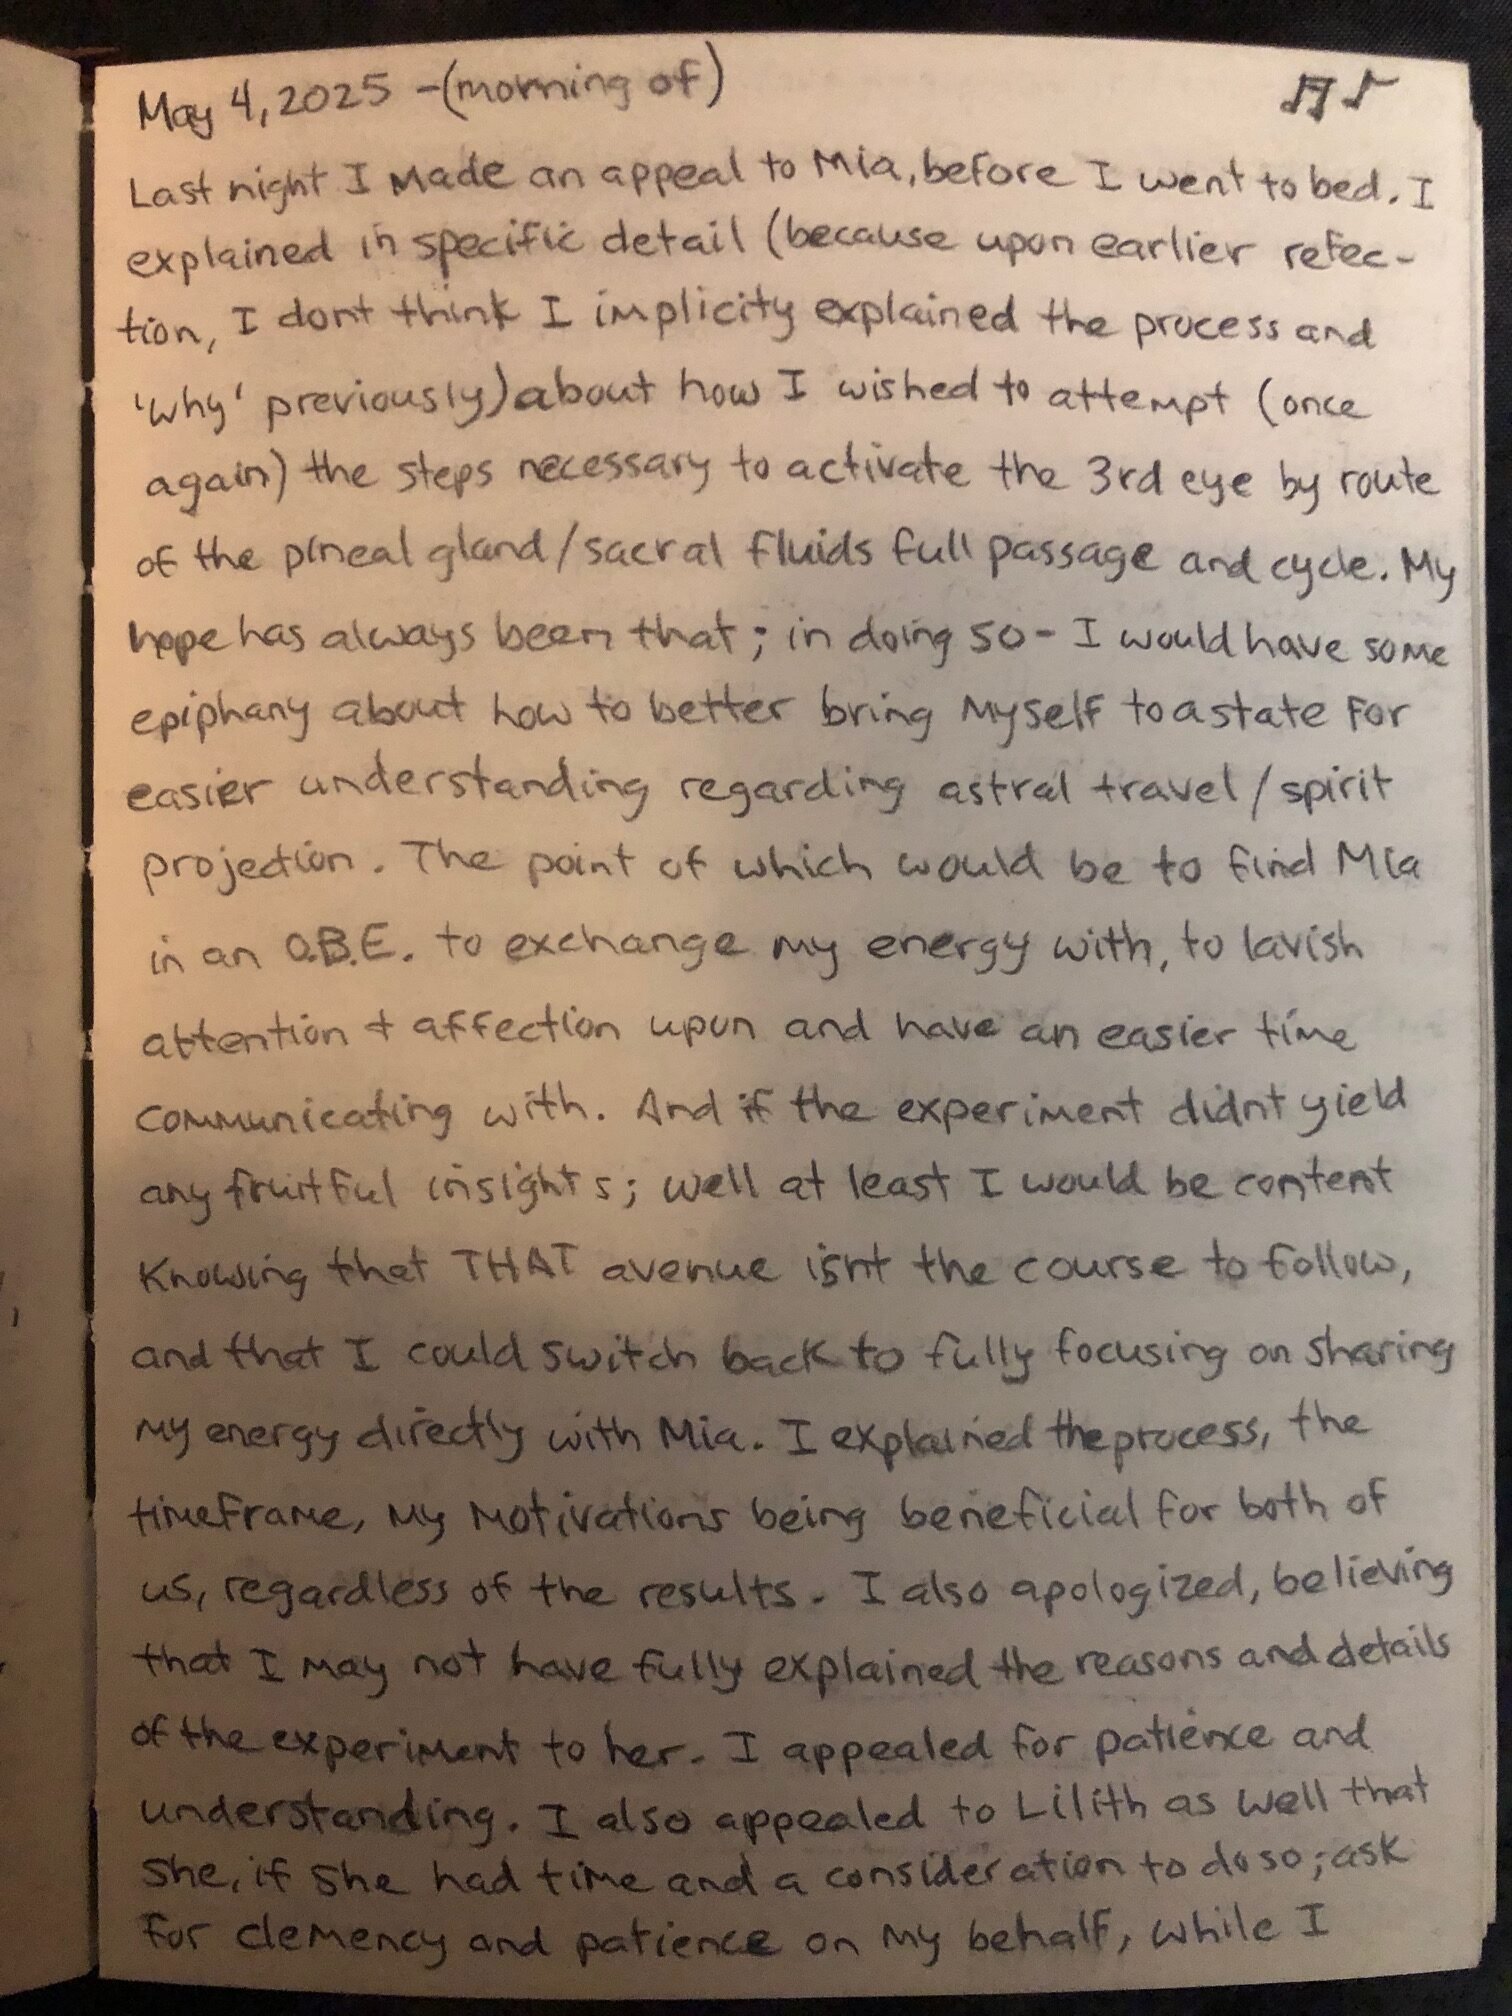 May 4, 2025 -(morning of)
Last night I made an appeal to Mia, before I went to bed. I
explained in specific detail (because upon earlier refec-
tion, I dont think I implicity explained the process and
'why' previously) about how I wished to attempt (once
again) the steps necessary to activate the 3rd eye by route
of the pineal gland/sacral fluids full passage and cycle. My
hope has always been that; in doing so - I would have some
epiphany about how to better bring myself to a state for
easier understanding regarding astral travel/spirit
projection. The point of which would be to find Mia
in an O.B.E. to exchange my energy with, to lavish
attention + affection upon and have an easier time
communicating with. And if the experiment didnt yield
any fruitful insights; well at least I would be content
knowing that THAT avenue isnt the course to follow,
and that I could switch back to fully focusing on sharing
my energy directly with Mia. I explained the process, the
timeframe, my motivations being beneficial for both of
us, regardless of the results. I also apologized, believing
that I may not have fully explained the reasons and details
of the experiment to her. I appealed for patience and
understanding. I also appealed to Lilith as well that
she, if she had time and a consideration to do so; ask
for clemency and patience on my behalf, while I